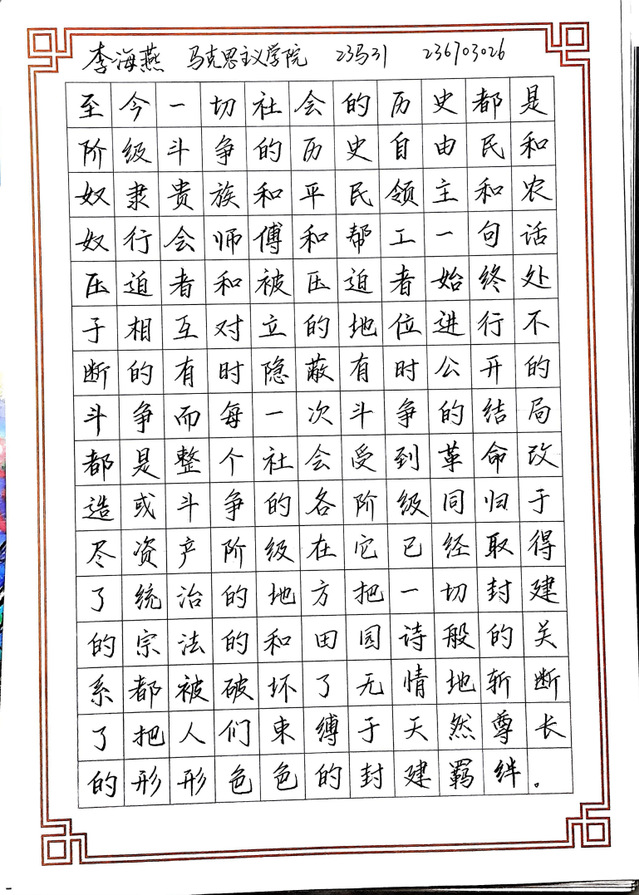 李海燕 马克思主义学院 23马31 236703026
至今一切社会的历史都是
阶级斗争的历史自由民和
奴隶贵族和平民领主和农
奴行会师傅和帮工一句话
压迫者和被压迫者始终处
于相互对立的地位进行不
断的有时隐蔽有时公开的
斗争而每一次斗争的结局
都是整个社会受到革命改
造或斗争的各阶级同归于
尽资产阶级在它已经取得
了统治的地方把一切封建
的宗法的和田园诗般的关
系都被破坏了无情地斩断
了把人们束缚于天然尊长
的形形色色的封建羁绊。